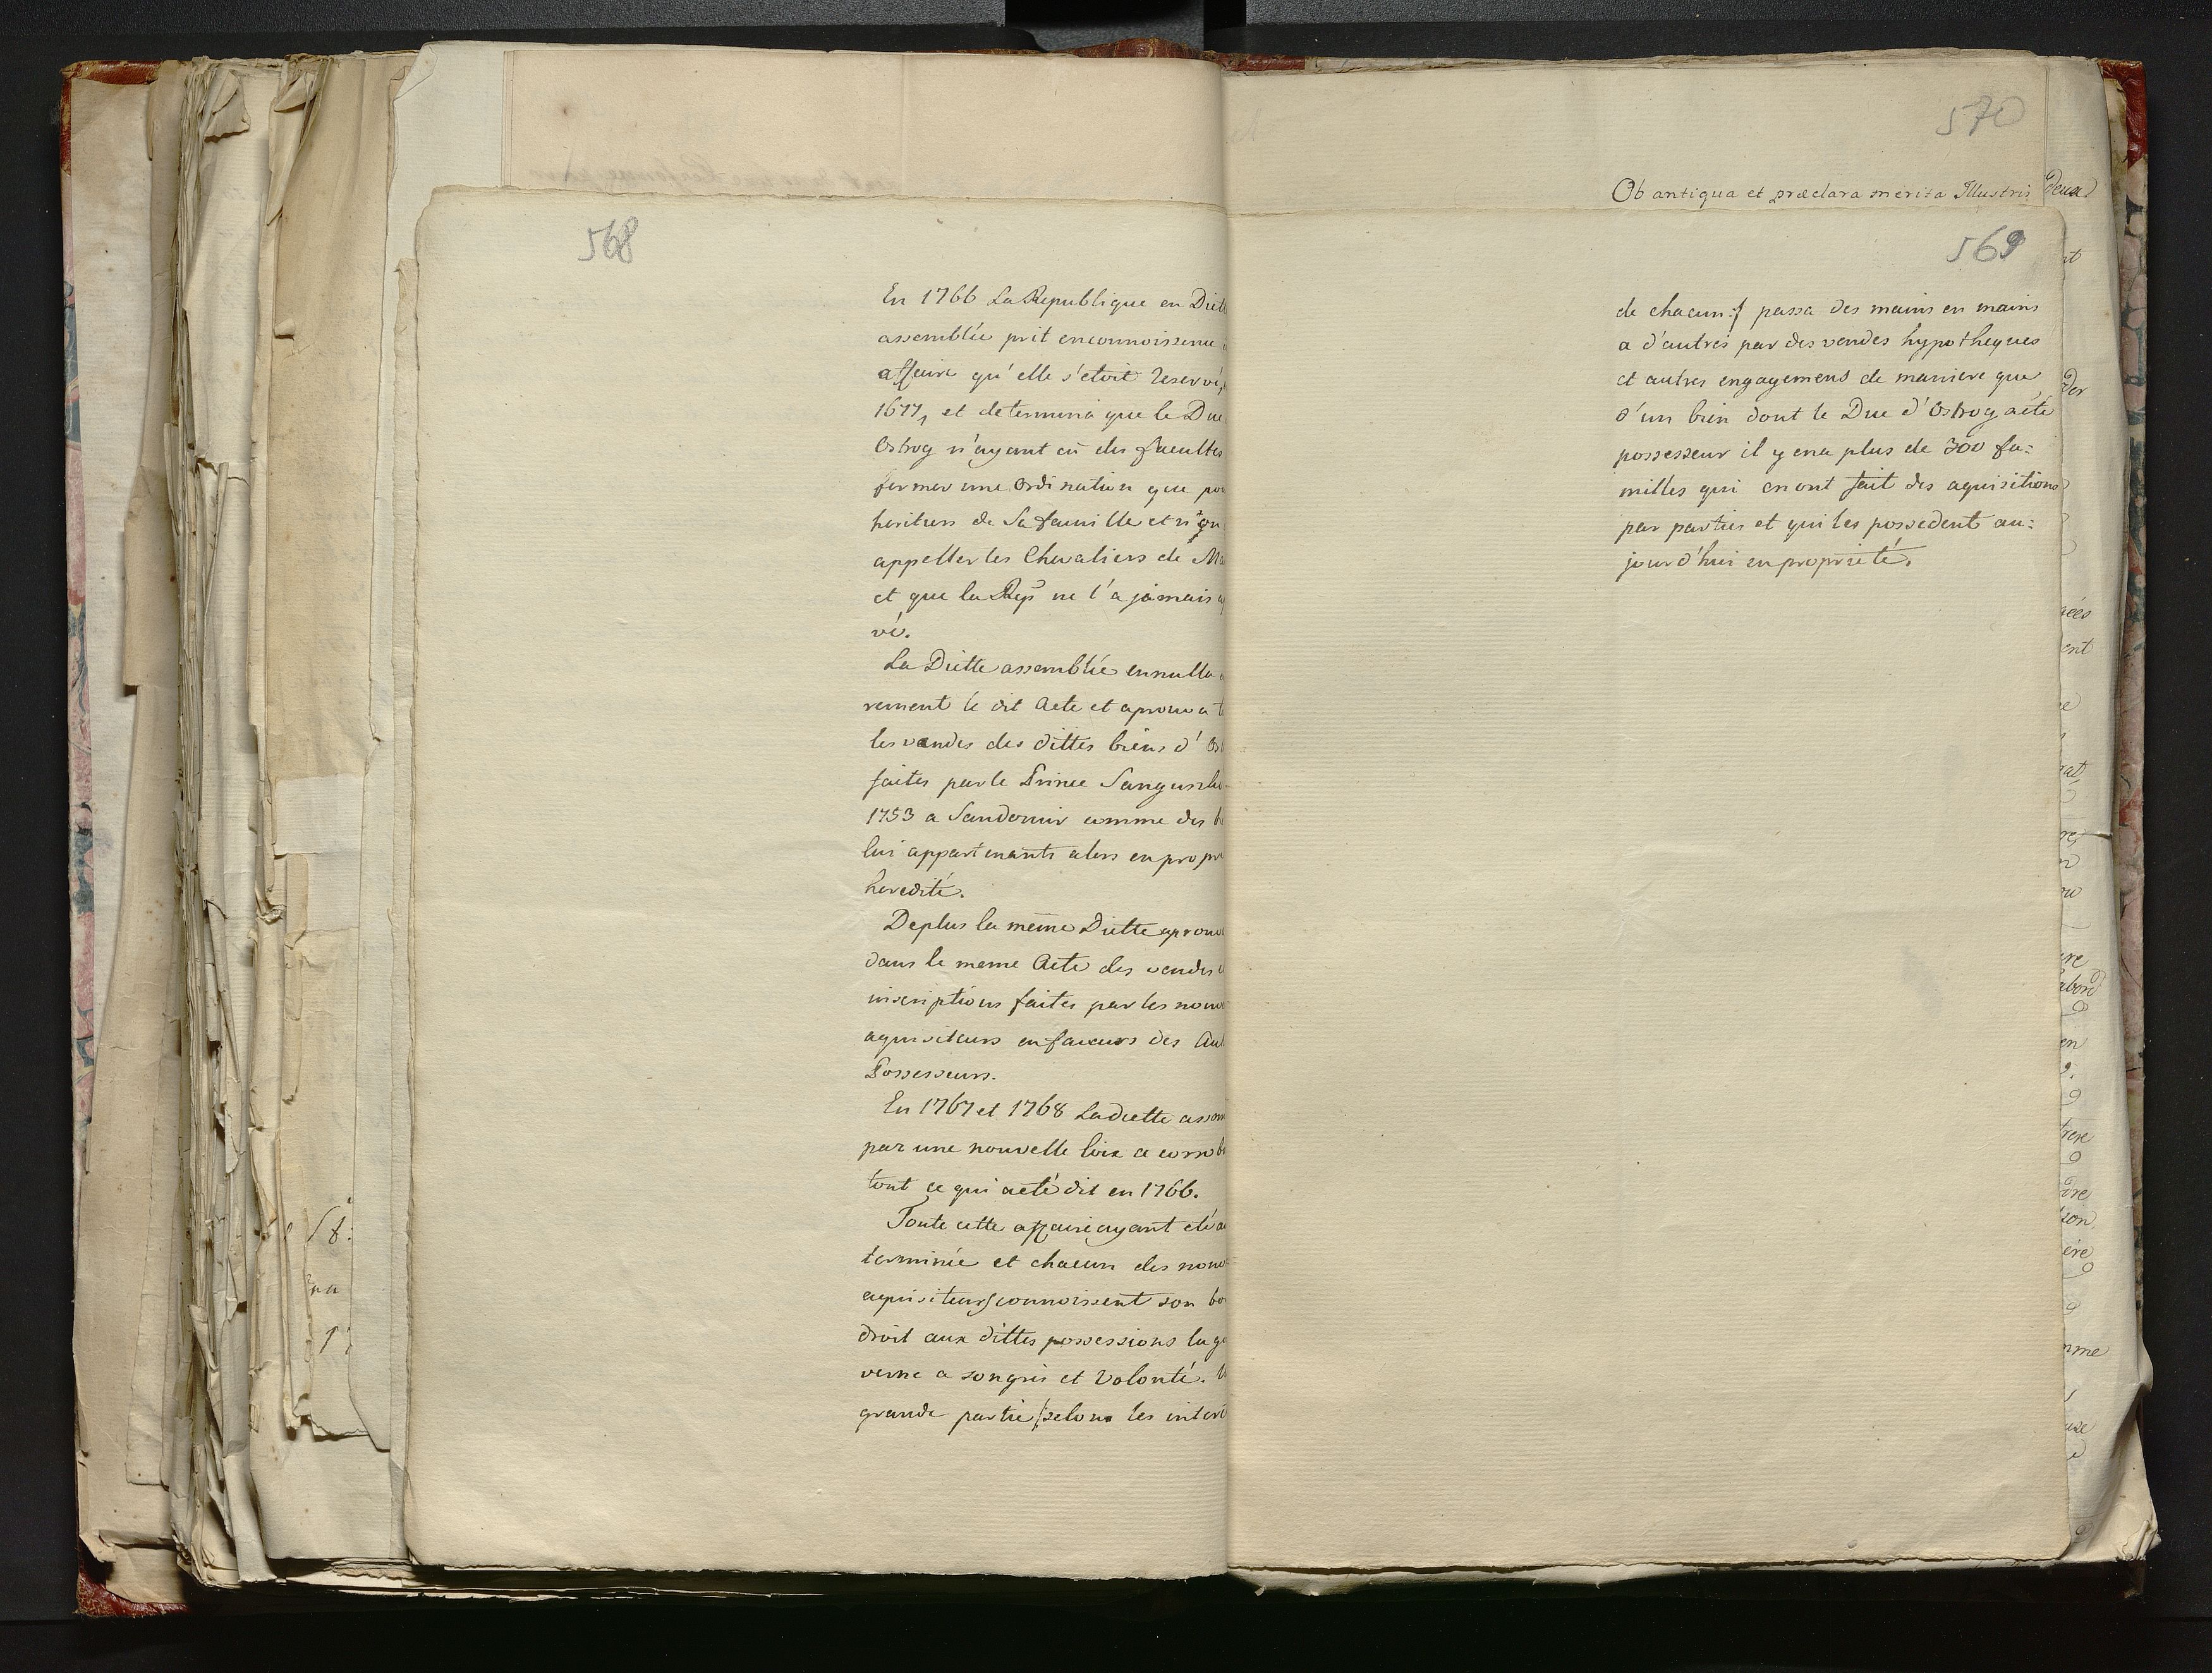 568
En 1766 La Republique en Diett
assemblée prit enconnoissence
affaire qu'elle s'etoit reservé,
1677, et determina que le Duc
Ostrog n'ayant eû des facultes
former une Ordination que pou
heritiers de Sa famille et n'
appeller les Chevaliers de Ma
et que la Rep ne l'a jamais a
vé.
La Diette assemblée ennulla
rement le dit Acte et aprouva t
les vendes des dittes biens d'Os
faites par le Prince Sangusko
1753 a Sandomir comme des b
lui appartenants alors en propr
heredité.
Deplus la même Diette aprouv
dans le meme Acte des vendes
inscriptions faites par les nouv
aquisiteurs en faveurs des Aut
Possesseurs.
En 1767 et 1768 La diette assem
par une nouvelle loix a corrob
tout ce qui aeté dit en 1766.
Toute cette affaire ayant eté a
terminée et chacun des nouv
aquisiteurs connoissent son bo
droit aux dittes possessions la go
verne a songrés et Volonté. U
grande partie /:selons les interé
570
Ob antiqua et præclara merita Illustris
569
de chacun:/ passa des mains en mains
a d'autres par des vendes hypotheques
et autres engagemens de maniere que
d'un bien dont le Duc d'Ostrog aeté
possesseur il y ena plus de 300 fa:
milles qui enont fait des aquisitions
par parties et qui les possedent au:
jourd'hui en proprieté.